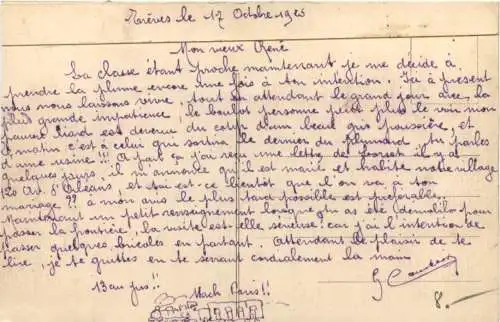 Trèves le 17 Octobre 1925
Mon vieux René
La classe étant proche maintenant je me décide à
prendre la plume encore une fois à ton intention. Ici à présent
nous nous laissons vivre, tout en attendant le grand jour avec la
plus grande impatience, le boulot personne peut plus le voir mon
pauvre est devenu du coup d'un beau gris poussière, et
matin c'est à celui qui sortira le dernier du plumard tu parles
d'une usine!!! A part ça j'ai reçu une lettre de il y a
quelques jours. il m'annonce qu'il est marié et habite notre village
20 Art. d'Orléans, et toi est-ce bientôt que l'on va à ton
mariage?? à mon avis le plus tard possible est préférable.
Maintenant un petit renseignement lorsque tu as été démobilo pour
passer la frontière, la visite est-elle sérieuse: car j'ai l'intention de
passer quelques bricoles en partant. Attendant le plaisir de te
lire, je te quittes en te serrant cordialement la main
13 au jus!!
Nach Paris!!
8.-